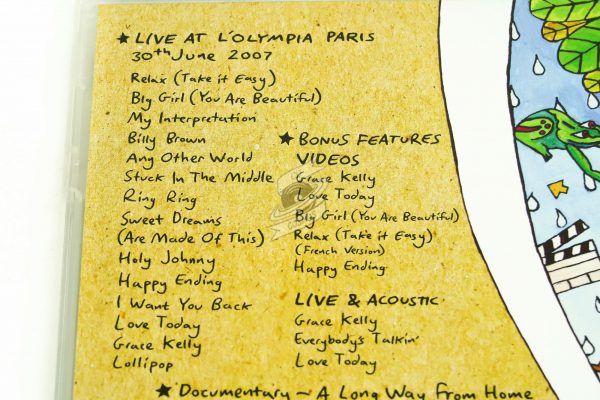 ★ LIVE AT L'OLYMPIA PARIS
30th June 2007
Relax (Take it Easy)
Big Girl (You Are Beautiful)
My Interpretation
Billy Brown
Any Other World
Stuck In The Middle
Ring Ring
Sweet Dreams
(Are Made Of This)
Holy Johnny
Happy Ending
I Want You Back
Love Today
Grace Kelly
Lollipop
★ BONUS FEATURES
VIDEOS
Grace Kelly
Love Today
Big Girl (You Are Beautiful)
Relax (Take it Easy)
(French Version)
Happy Ending
LIVE & ACOUSTIC
Grace Kelly
Everybody's Talkin'
Love Today
★ Documentary ~ A Long Way From Home